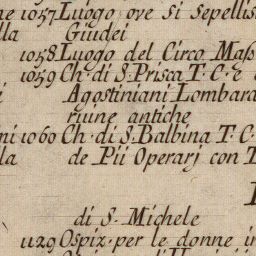 ne 1057. Luogo ove si sepellis
lla Giudei
1058. Luogo del Circo Mass
1059 Ch. di S. Prisca T. C. e
i Agostiniani Lombard
riune antiche
ni 1060 Ch. di S. Balbina T. C.
la de Pii Operarj con T
di S. Michele
1129 Ospiz. per le donne in